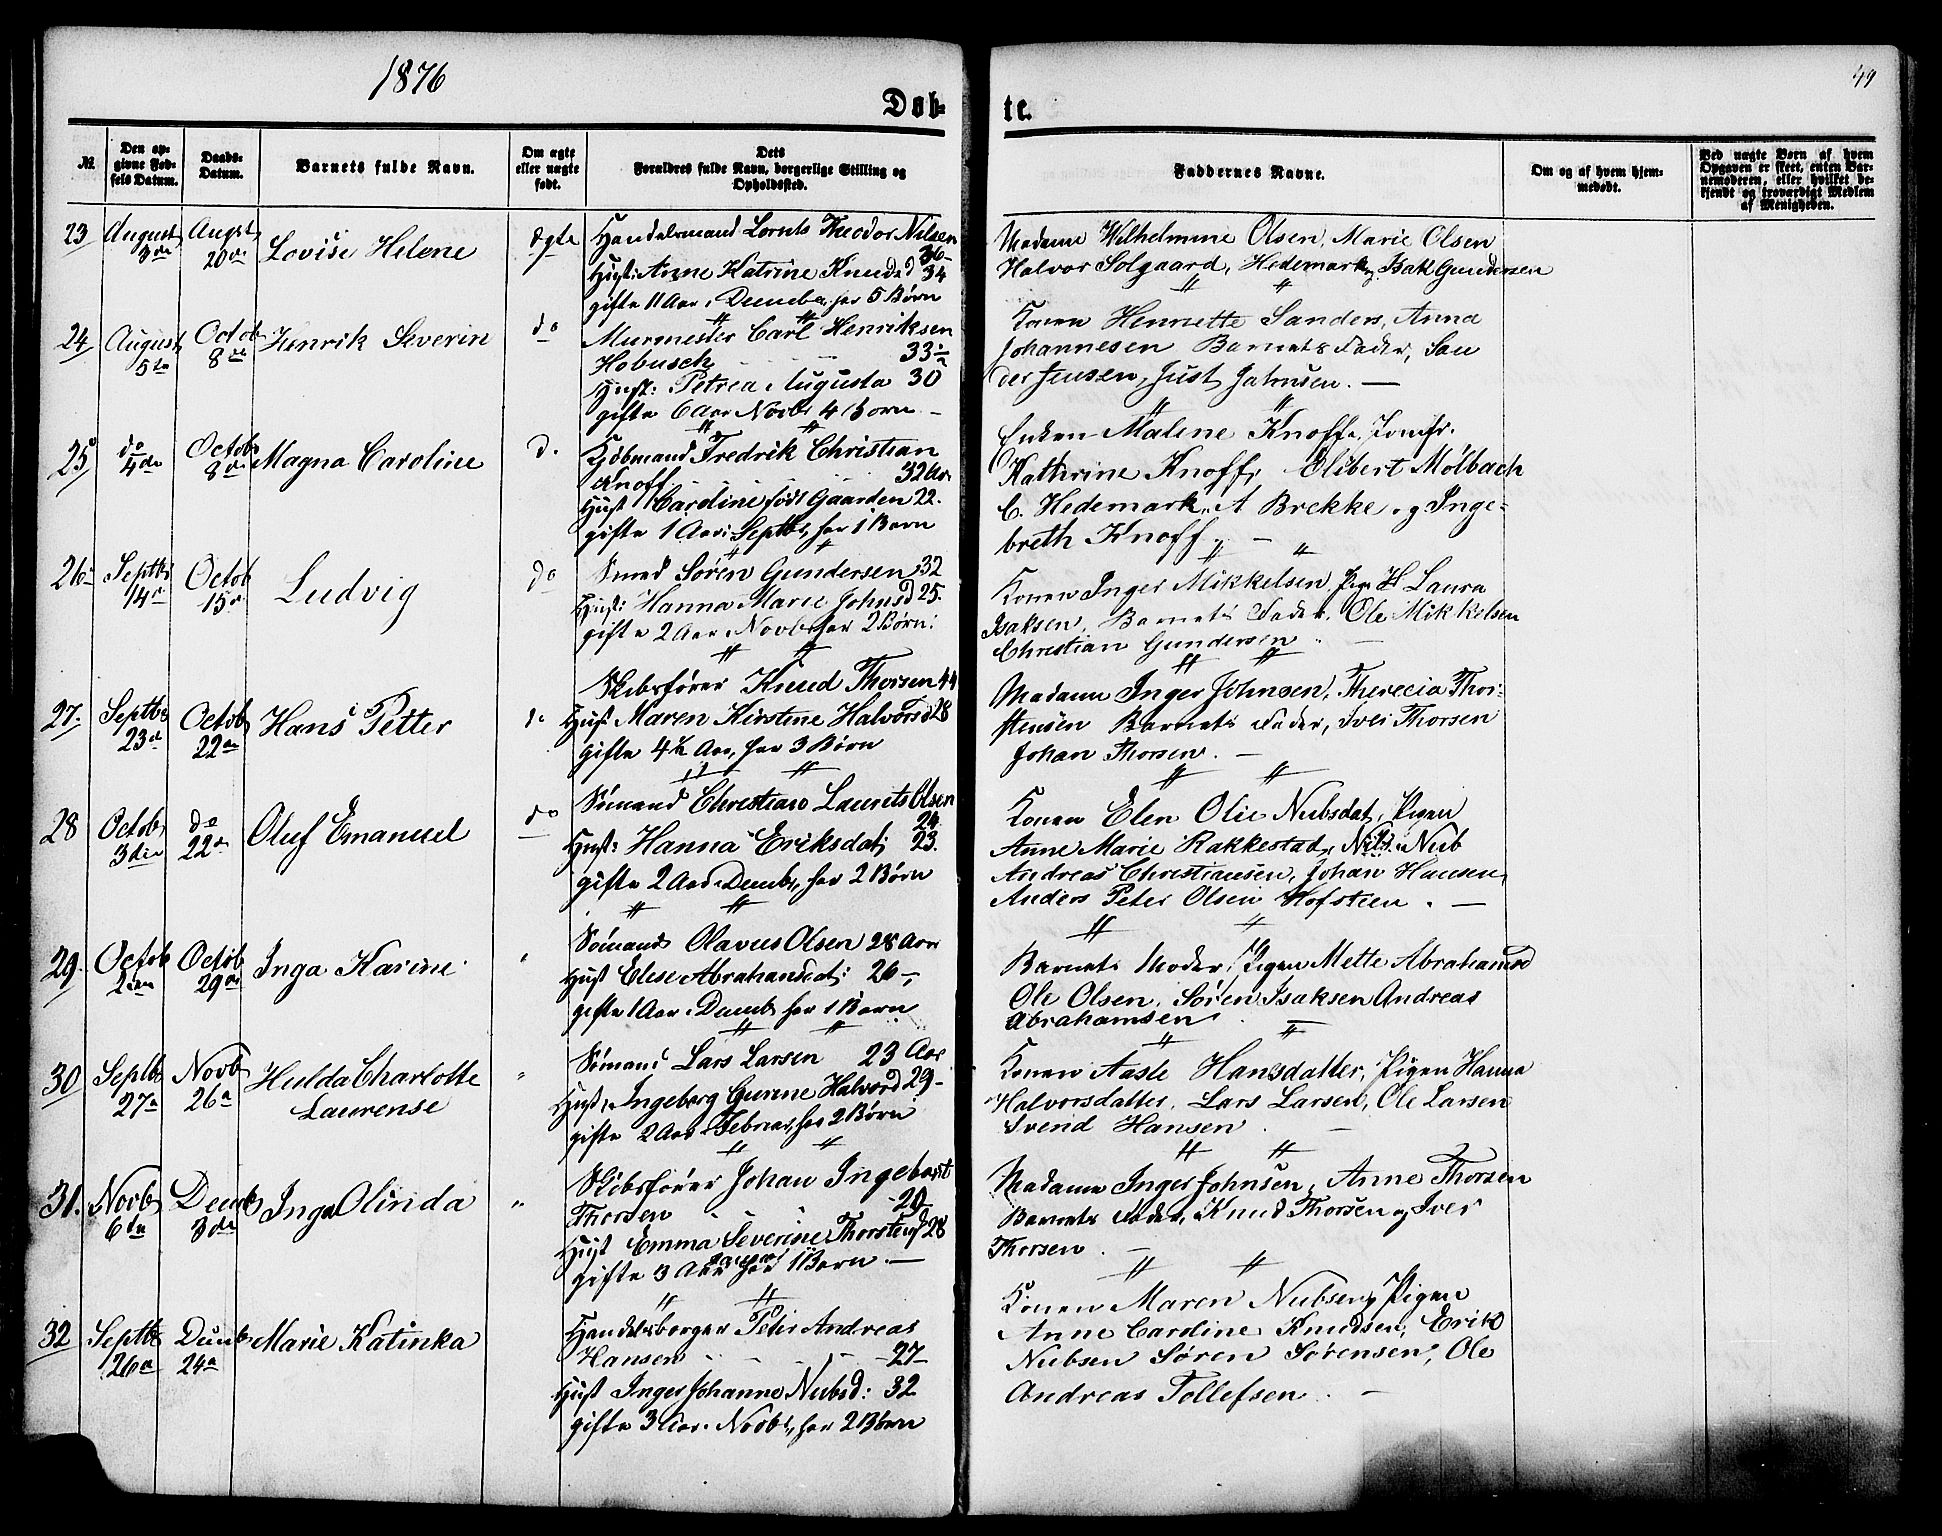 1876
49
Døb- te.
№
Den op-
givne Fød-
sels Datum.
Daabs-
Datum.
Barnets fulde Navn.
Om ægte
eller uægte
født.
Dets
Forældres fulde Navn, borgerlige Stilling og
Opholdssted.
Faddernes Navne.
Om og af hvem hjem-
medøbt.
Ved uægte Børn af hvem
Opgaven er skeet, enten Bar-
nemoderen, eller hvilket be-
kjendt og troværdigt Medlem
af Menigheden.
23 August 3de Augst 20de Lovise Helene ægte
Handelsmand Lornts Theodor Nilsen
36
Hust: Anne Katrine Knudsd 34
gifte 11 Aar i Decembe, har 5 Børn
Madame Wilhelmine Olsen, Marie Olsen
Halvor Solgaard, Hedemark og Isak Gundersen
24 August 5te Octob 8de Henrik Severin do
Murmester Carl Henriksen
Hobusch 33
Hust: Petrea Augusta 30
gifte 6 Aar Novbr 4 Børn
Konen Henriette Sanders, Anna
Johannesen Barnets Fader, San
der Jensen, Just Jahnsen.
25 do 4de Octob 8de Magna Caroline d.
Kjøbmand Fredrik Christian
Knoff 32 Aar
Hust Caroline født Gaarden 22.
gifte 1 Aar i Septbr, har 1 Barn
Enken Malene Knoff, Jomfr.
Kathrine Knoff, Elibert Mølbach
C. Hedemark, A Brekke og Inge-
breth Knoff.
26 Septbr 14de Octob 15de Ludvig do
Smed Søren Gundersen 32
Hust: Hanna Marie Johnsd 25.
gifte 2 Aar i Novbr har 2 Børn
Konen Inger Mikkelsen, Pige H Laura
Isaksen, Barnets Fader, Ole Mikkelsen
Christian Gundersen
27. Septbr 23de Octob 22de Hans Petter do
Skibsfører Knud Thorsen 44
Hust Maren Kirstine Halvorsd 28
gifte 4½ Aar, har 3 Børn
Madame Inger Johnsen, Therecia Thor-
stensen Barnets Fader, Iver Thorsen
Johan Thorsen.
28 Octob 3die do 22de Oluf Emanuel do
Sømand Christian Laurits Olsen
24
Hust: Hanna Eriksdat; 23.
gifte 2 Aar i Decmb, har 2 Børn
Konen Elen Olie Nubsdat, Pigen
Anne Marie Rakkestad, Nils Nub
Andreas Christiansen, Johan Hansen,
Anders Peter Olsen Hofsteen.
29. Octob 2den Octob 29de Inga Karine
Sømand Olavus Olsen 28 Aar
Hust Elese Abrahamsdat: 26
gifte 1 Aar i Decmb har 1 Barn
Barnets Moder, Pigen Mette Abrahamsd
Ole Olsen, Søren Isaksen Andreas
Abrahamsen
30 Septbr 27de Novb 26de Hulda Charlotte
Laurense
Sømand Lars Larsen 23 Aar
Hust, Ingeborg Gurine Halvorsd 29
gifte 2 Aar i Februar, har 2 Børn
Konen Aaste Hansdatter, Pigen Hanna
Halvorsdatter, Lars Larsen, Ole Larsen
Svend Hansen
31. Novb 6te Decmb 3de Inga Olinda
Skibsfører Johan Ingebort
Thorsen 29
Hust Emma Severine Thorstensd 28
gifte 3 Aar har 1 Barn
Madame Inger Johnsen, Anne Thorsen
Barnets Fader, Knud Thorsen og Iver
Thorsen
32 Septbr 26de Decmb 24de Marie Katinka
Handelsborger Peter Andreas
Hansen 27
Hust Inger Johanne Nubsd: 32
gifte 3 Aar i Novbr, har 2 Børn
Konen Maren Nubsen, Pigen
Anne Caroline Knudsen, Erik
Nubsen Søren Sørensen, Ole
Andreas Tollefsen